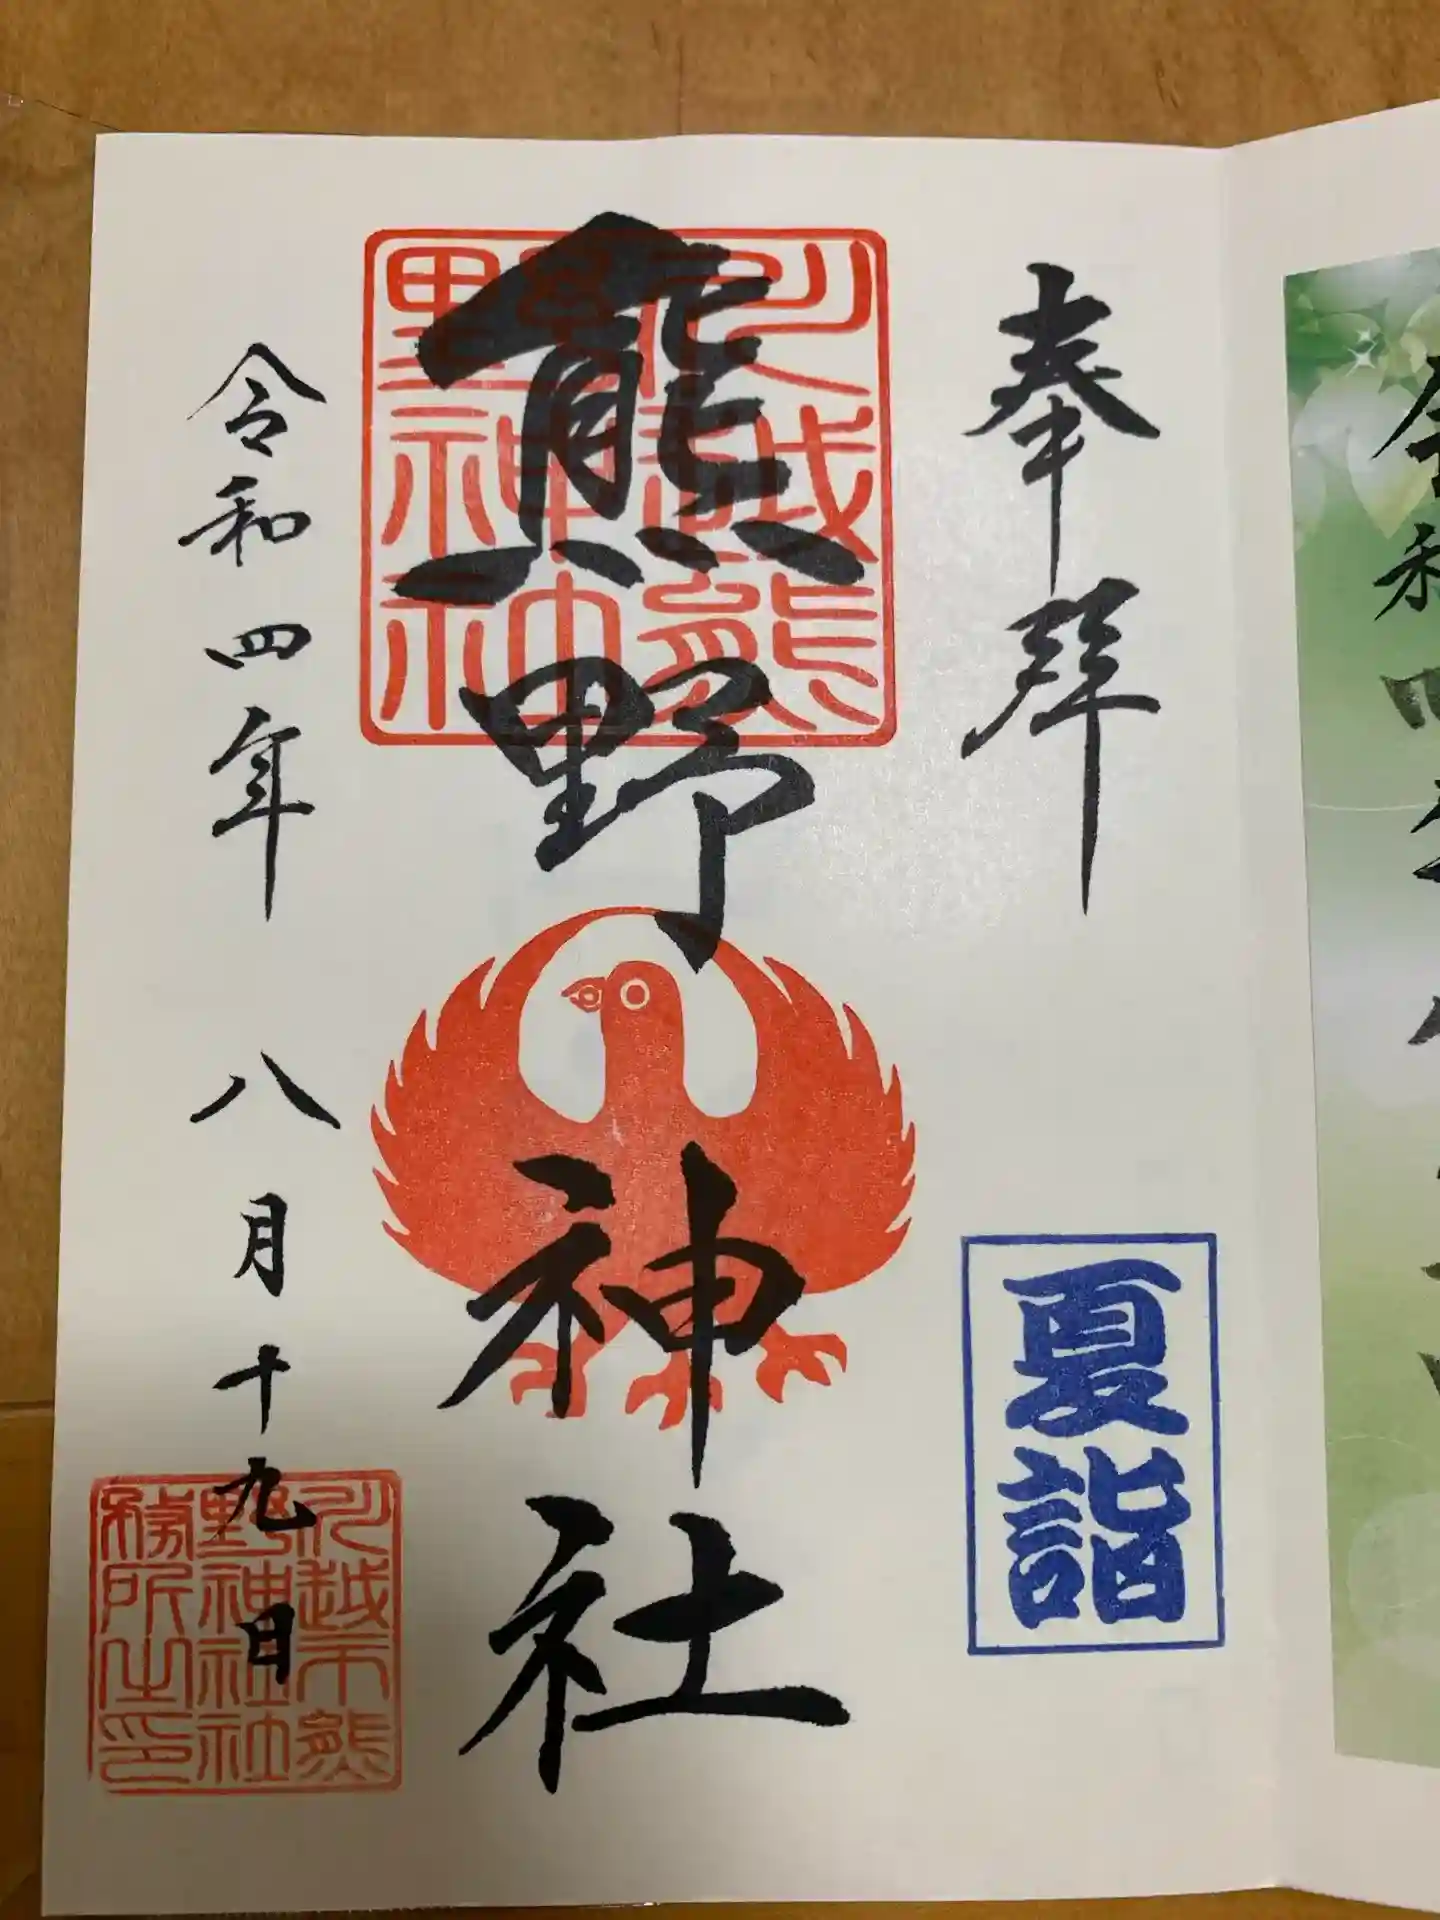 奉拝
夏詣
熊野神社
川越熊
野神社
令和四年 八月十九日
川越市熊
野神社社
務所之印
令和四